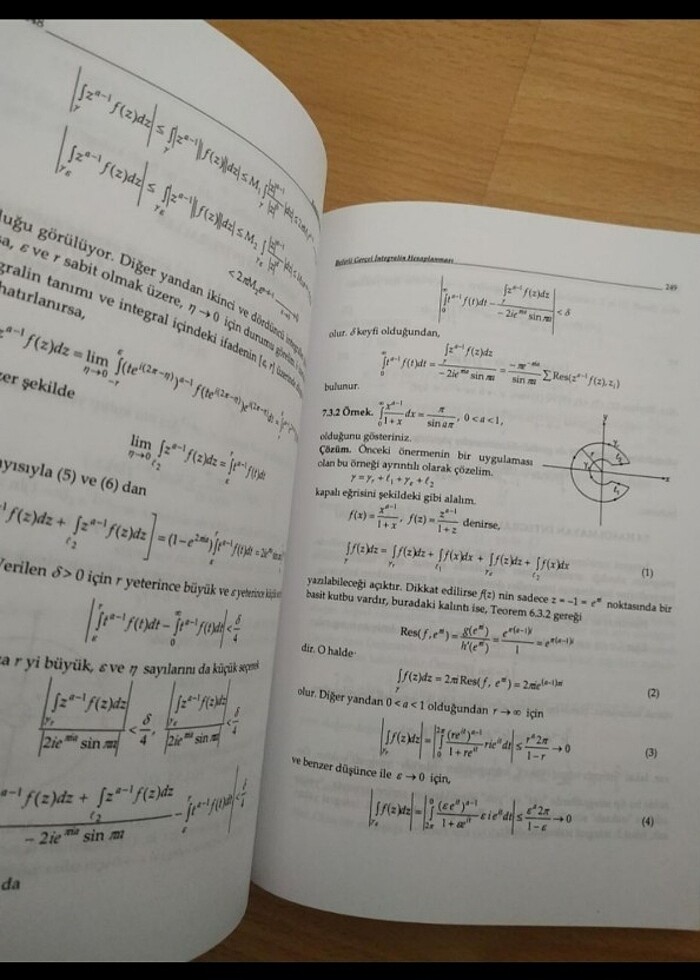 |∫_γ z^{a-1} f(z)dz| ≤ ∫_γ |z^{a-1}||f(z)||dz| ≤ M₁
|∫_{γ_ε} z^{a-1} f(z)dz| ≤ ∫_{γ_ε} |z^{a-1}||f(z)||dz| ≤ M₂
görülüyor. Diğer yandan ikinci ve dördüncü
ε ve r sabit olmak üzere, η→0 için durumu
tanımı ve integral içindeki ifadenin [ε, r]
hatırlanırsa,
f(z)dz = lim_{η→0} ∫_{-r}^{ε} (te^{i(2π-η)})^{a-1} f(te^{i(2π-η)})e^{i(2π-η)}dt =
şekilde
lim_{η→0} ∫_{ℓ₂} z^{a-1} f(z)dz = ∫_ε^r t^{a-1} f(t)dt
(5) ve (6) dan
f(z)dz + ∫_{ℓ₂} z^{a-1} f(z)dz] = (1-e^{2πia}) ∫_ε^r t^{a-1} f(t)dt =
Verilen δ > 0 için r yeterince büyük ve ε yeterince
|∫_ε^r t^{a-1} f(t)dt - ∫_0^∞ t^{a-1} f(t)dt| < δ/4
r yi büyük, ε ve η sayılarını da küçük seçerek
|∫_{γ_r} z^{a-1} f(z)dz| / |2ie^{πia} sin πa| < δ/4, |∫_{γ_ε} z^{a-1} f(z)dz| / |2ie^{πia} sin πa| < δ/4
f(z)dz + ∫_{ℓ₂} z^{a-1} f(z)dz / -2ie^{πia} sin πa - ∫_ε^r t^{a-1} f(t)dt| < δ/4
da
Belirli Gerçel İntegralin Hesaplanması 249
|∫_0^∞ t^{a-1} f(t)dt - ∫_γ z^{a-1} f(z)dz / -2ie^{πia} sin πa| < δ
olur. δ keyfi olduğundan,
∫_0^∞ t^{a-1} f(t)dt = ∫_γ z^{a-1} f(z)dz / -2ie^{πia} sin πa = -πe^{-πia} / sin πa ∑ Res(z^{a-1} f(z), z_i)
bulunur.
7.3.2 Örnek. ∫_0^∞ x^{a-1}/(1+x) dx = π/sin aπ, 0 < a < 1,
olduğunu gösteriniz.
Çözüm. Önceki önermenin bir uygulaması
olan bu örneği ayrıntılı olarak çözelim.
γ = γ_r + ℓ₁ + γ_ε + ℓ₂
kapalı eğrisini şekildeki gibi alalım.
f(x) = x^{a-1}/(1+x), f(z) = z^{a-1}/(1+z) denirse,
∫_γ f(z)dz = ∫_{γ_r} f(z)dz + ∫_{ℓ₁} f(x)dx + ∫_{γ_ε} f(z)dz + ∫_{ℓ₂} f(x)dx (1)
yazılabileceği açıktır. Dikkat edilirse f(z) nin sadece z = -1 = e^{πi} noktasında bir
basit kutbu vardır, buradaki kalıntı ise, Teorem 6.3.2 gereği
Res(f, e^{πi}) = g(e^{πi})/h'(e^{πi}) = e^{π(a-1)i}/1 = e^{π(a-1)i}
dir. O halde
∫_γ f(z)dz = 2πi Res(f, e^{πi}) = 2πie^{(a-1)πi} (2)
olur. Diğer yandan 0 < a < 1 olduğundan r→∞ için
|∫_{γ_r} f(z)dz| = |∫_0^{2π} (re^{it})^{a-1}/(1+re^{it}) rie^{it} dt| ≤ r^a 2π/(1-r) → 0 (3)
ve benzer düşünce ile ε→0 için,
|∫_{γ_ε} f(z)dz| = |∫_{2π}^0 (εe^{it})^{a-1}/(1+εe^{it}) εie^{it} dt| ≤ ε^a 2π/(1-ε) → 0 (4)